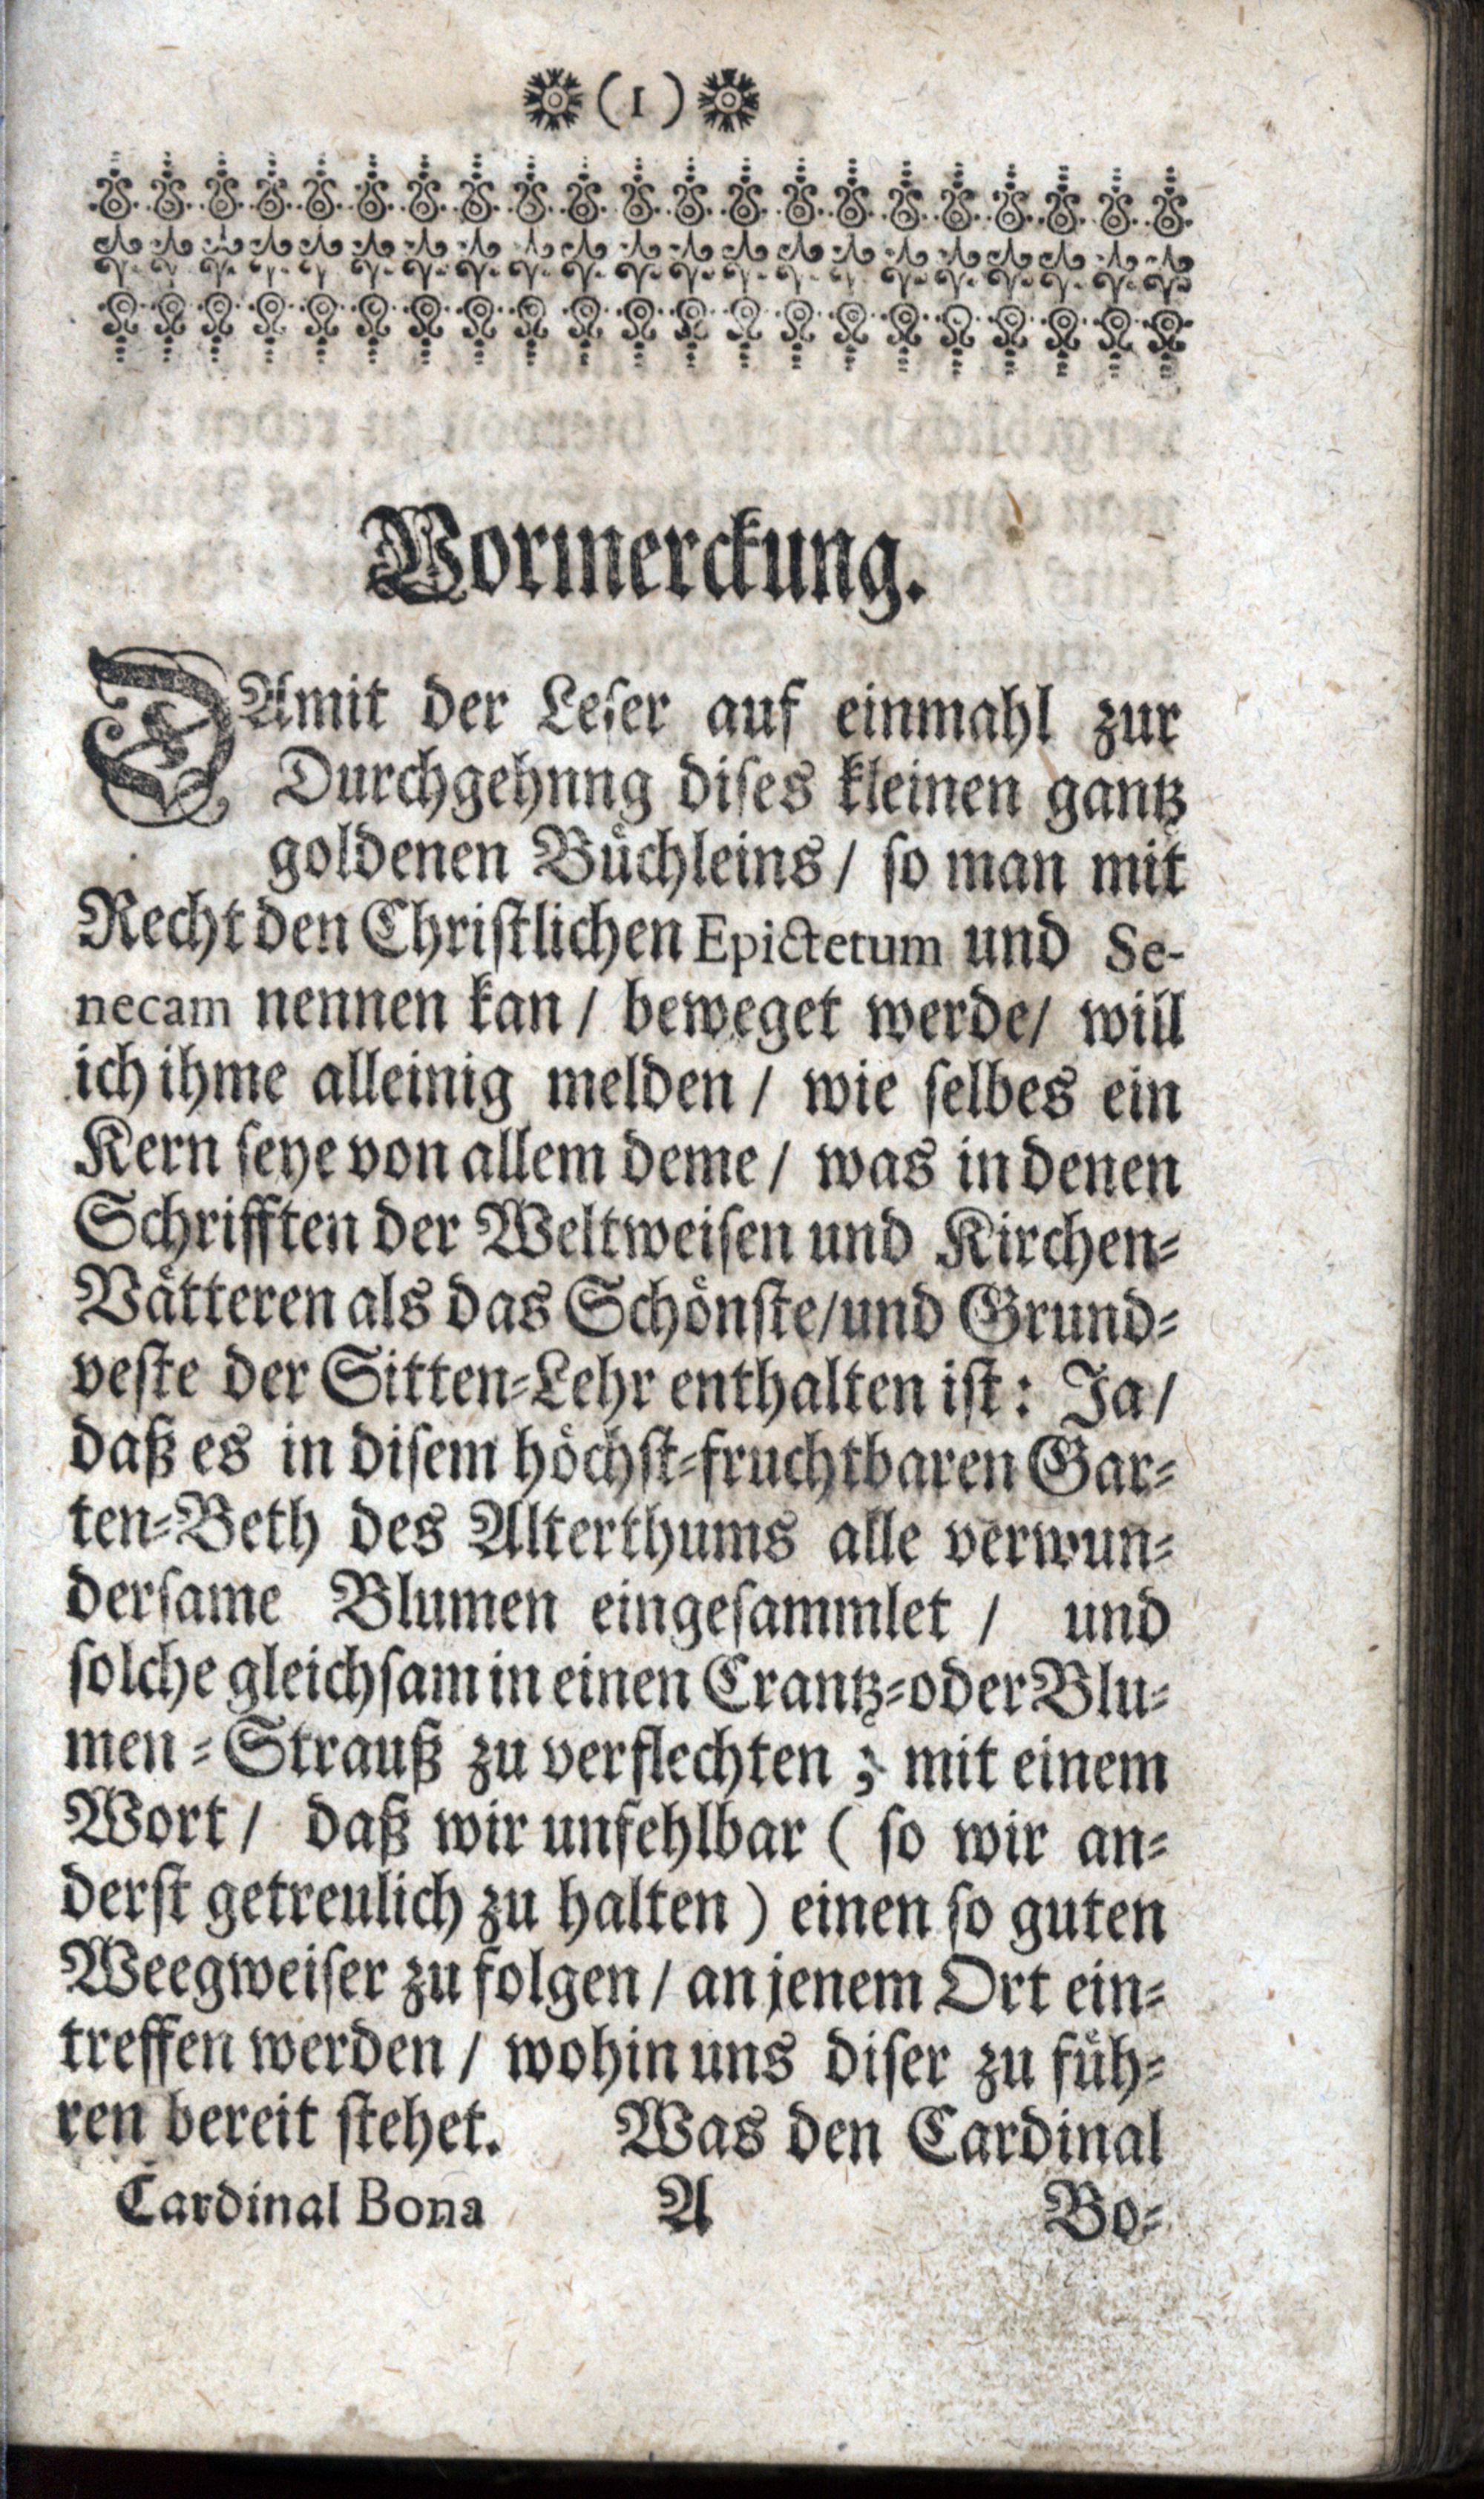 (1)
Vormerckung.
DAmit der Leſer auf einmahl zur
Durchgehnng diſes kleinen gantz
goldenen Büchleins / ſo man mit
Recht den Chriſtlichen Epictetum und Se-
necam nennen kan / beweget werde / will
ich ihme alleinig melden / wie ſelbes ein
Kern ſeye von allem deme / was in denen
Schrifften der Weltweiſen und Kirchen-
Vätteren als das Schönſte / und Grund-
veſte der Sitten-Lehr enthalten iſt: Ja /
daß es in diſem höchſt-fruchtbaren Gar-
ten-Beth des Alterthums alle verwun-
derſame Blumen eingeſammlet / und
ſolche gleichſam in einen Crantz-oder Blu-
men-Strauß zu verflechten ; mit einem
Wort / daß wir unfehlbar ( ſo wir an-
derſt getreulich zu halten ) einen ſo guten
Weegweiſer zu folgen / an jenem Ort ein-
treffen werden / wohin uns diſer zu füh-
ren bereit ſtehet. Was den Cardinal
Cardinal Bona A Bo-